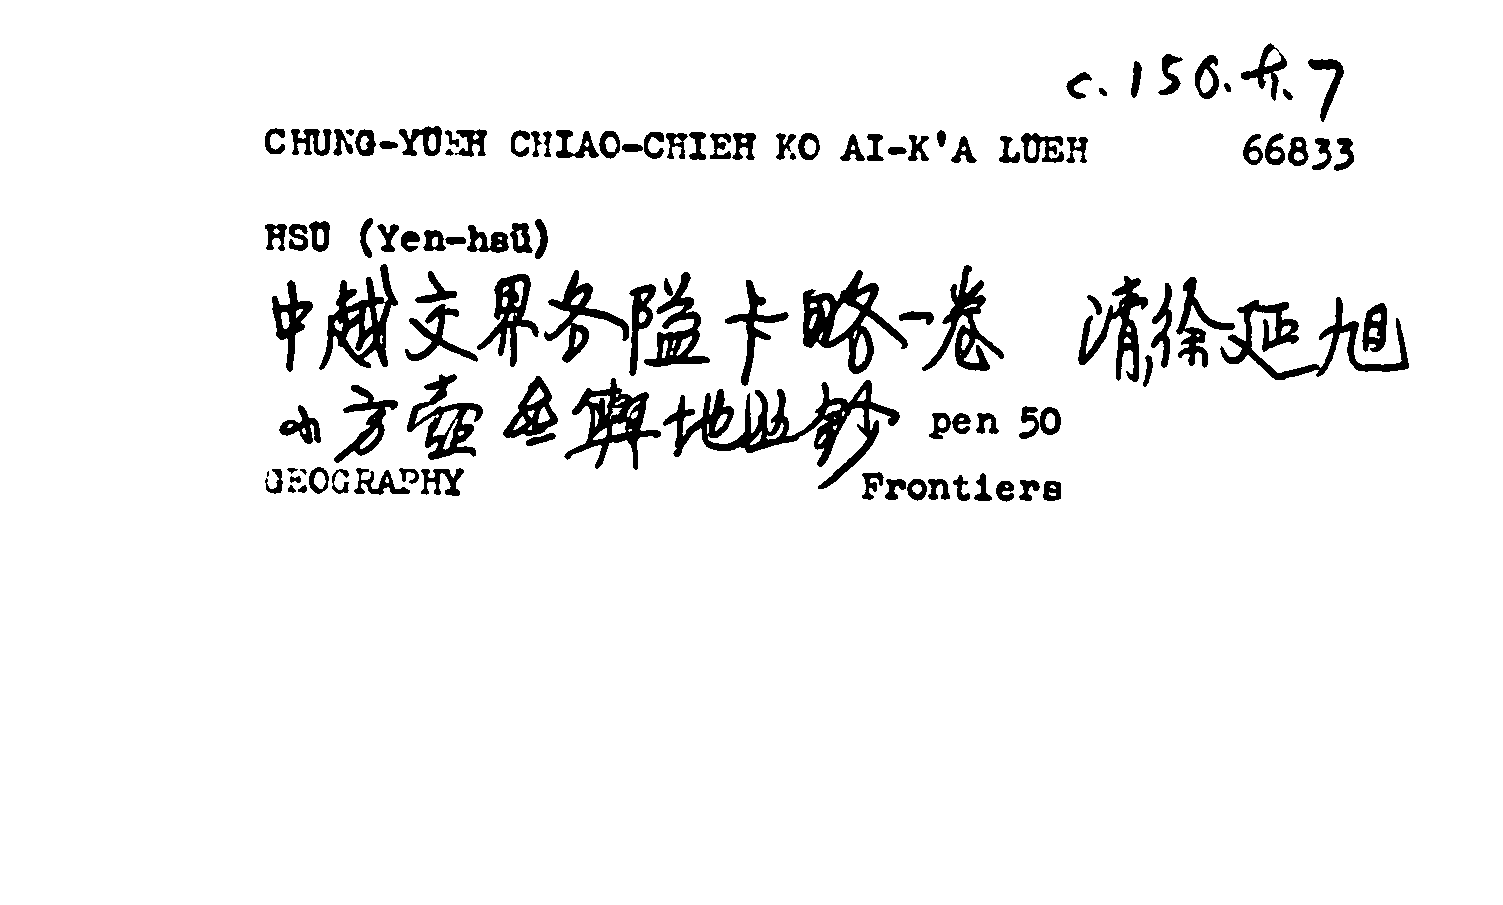 c.150.廾.7
CHUNG-YÜEH CHIAO-CHIEH KO AI-K'A LÜEH 66833
HSÜ (Yen-hsü)
中越交界各隘卡略一卷 清徐延旭
小方壺齋輿地叢鈔 pen 50
GEOGRAPHY Frontiers